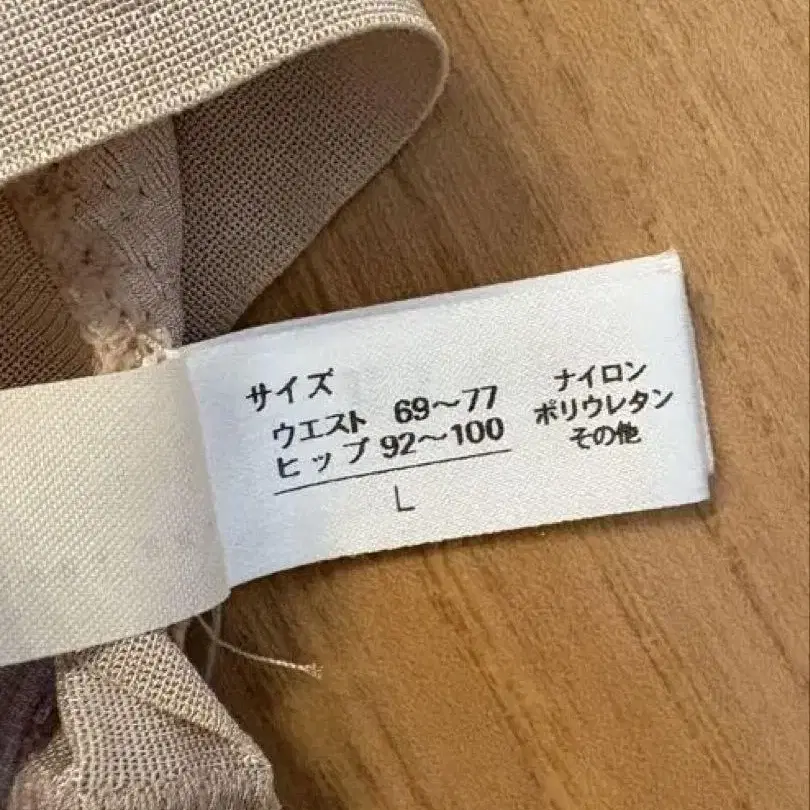 サイズ
ウエスト 69〜77
ヒップ 92〜100
L
ナイロン
ポリウレタン
その他